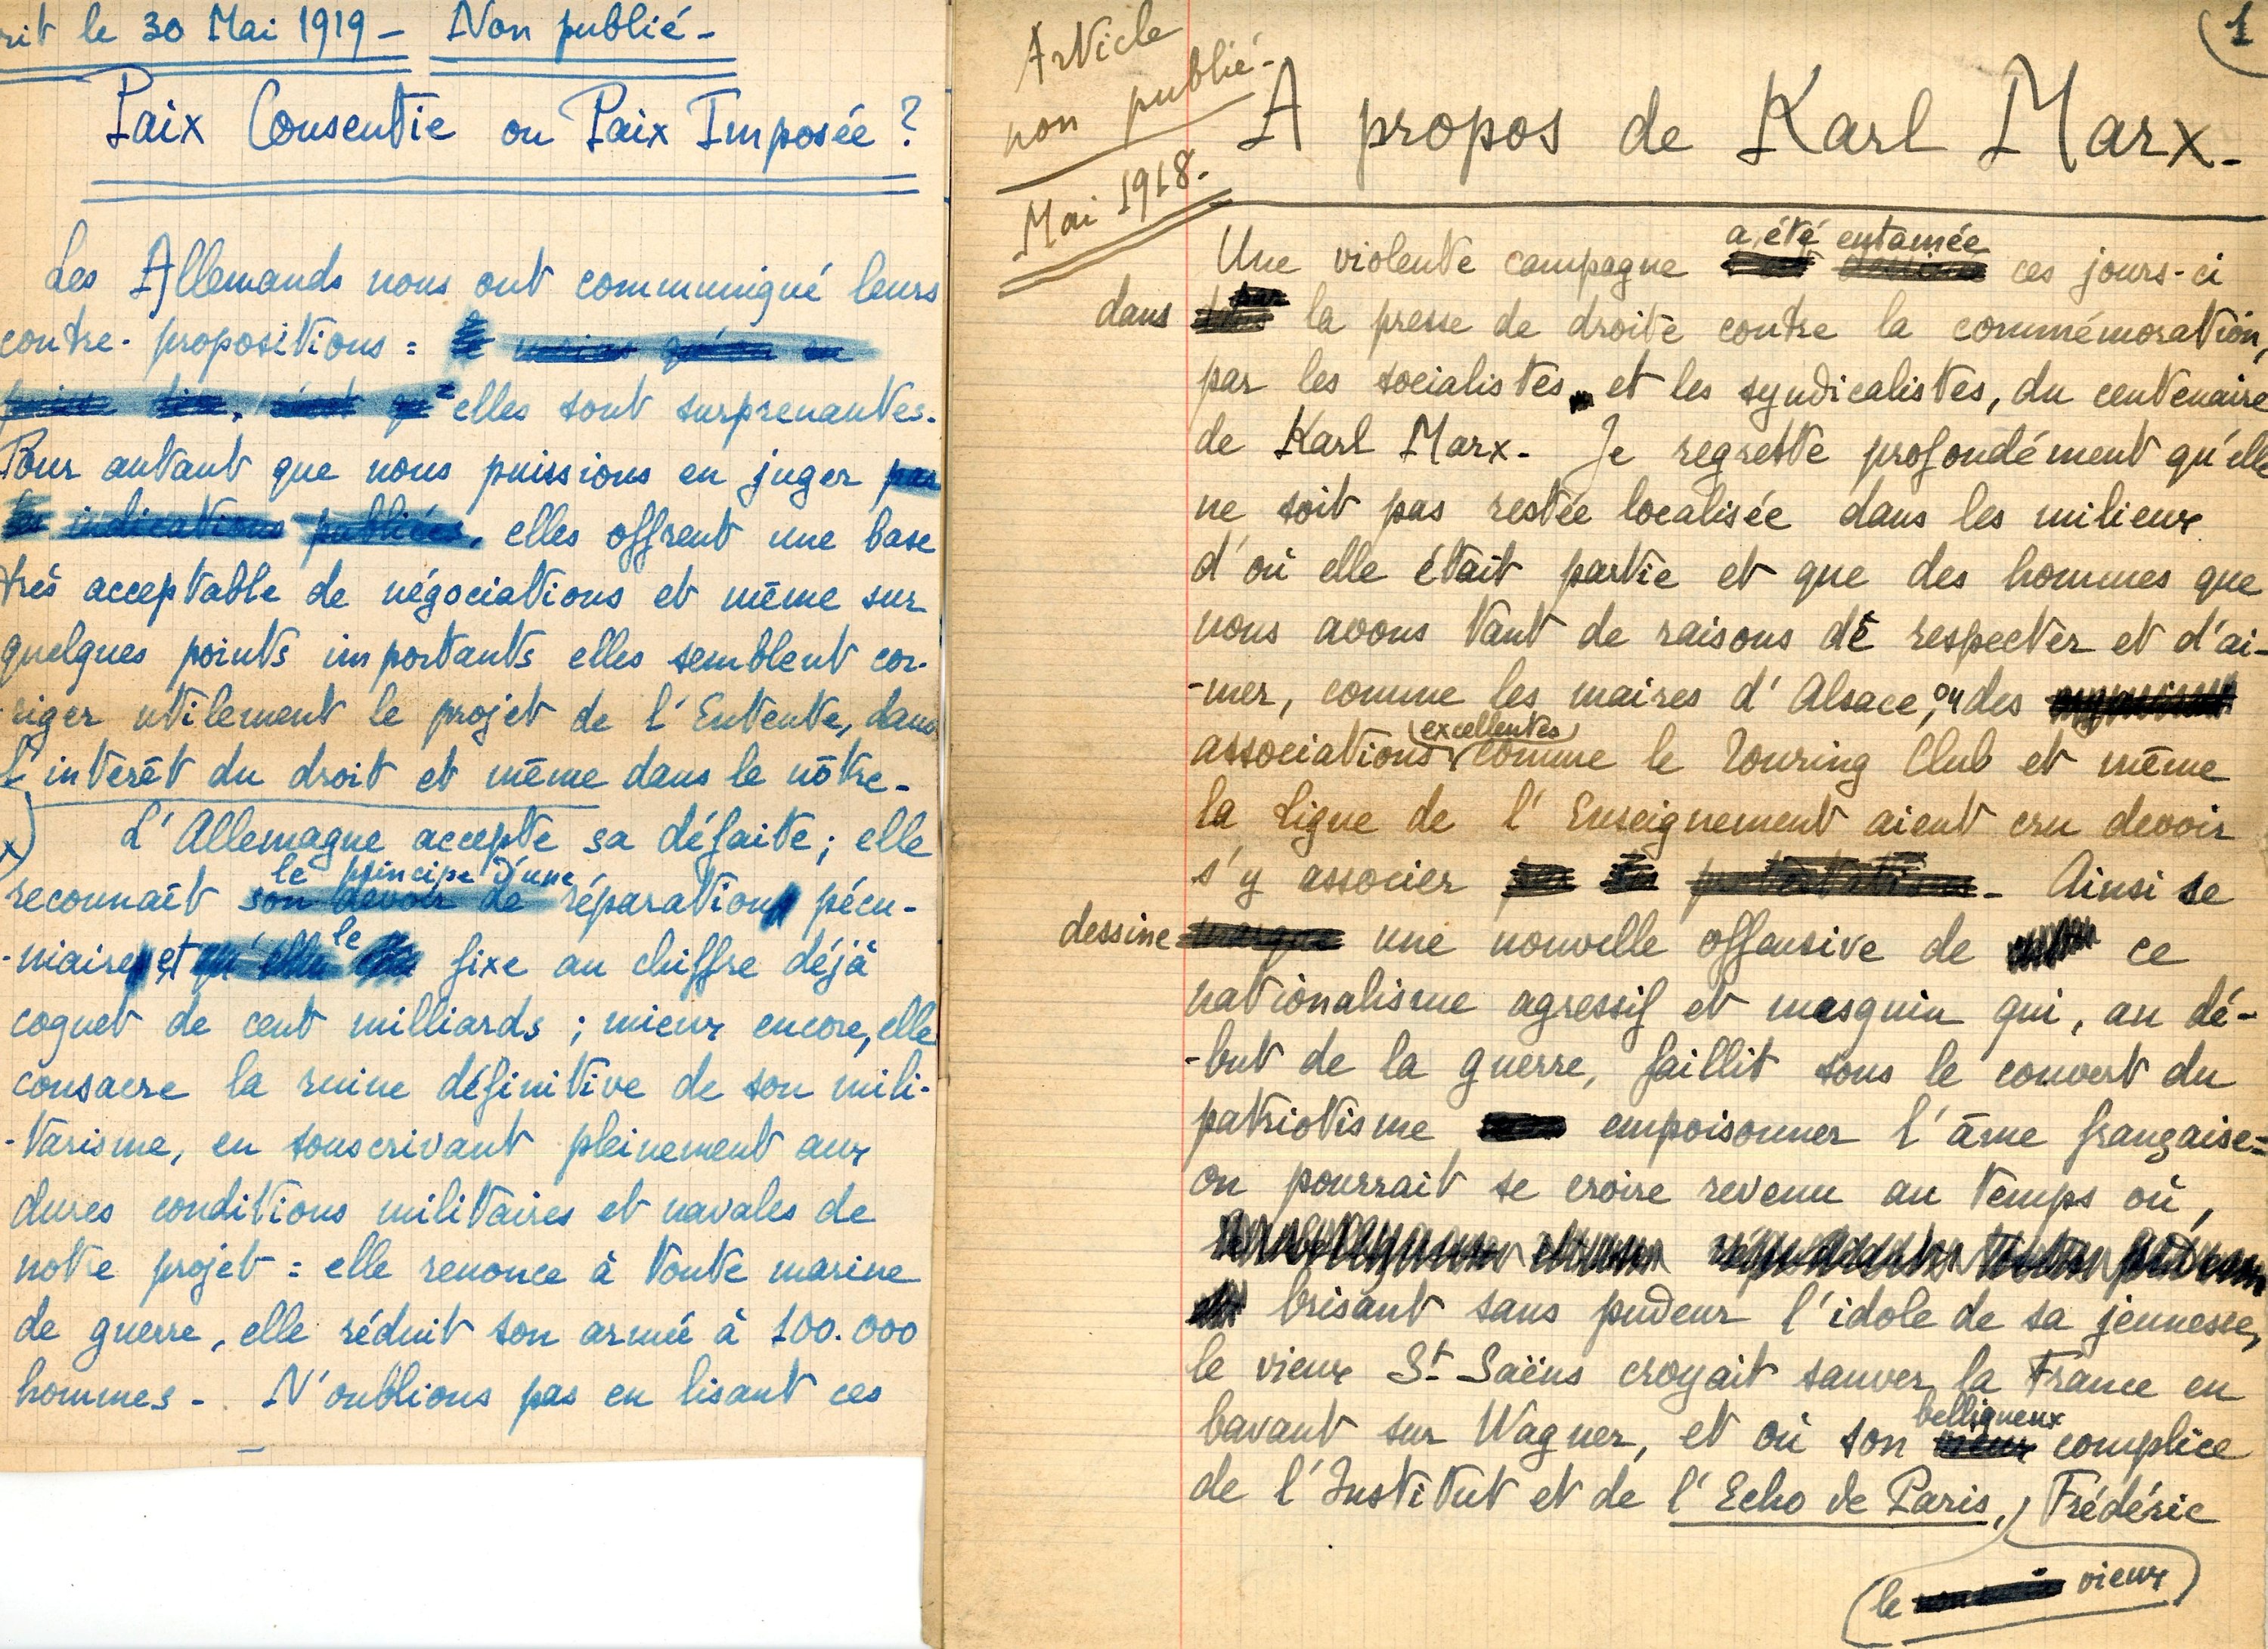 rit le 30 Mai 1919 - Non publié -
Paix Consentie ou Paix Imposée ?
Les Allemands nous ont communiqué leurs
contre-propositions :
elles sont surprenantes.
Pour autant que nous puissions en juger par
les indications publiées, elles offrent une base
très acceptable de négociations et même sur
quelques points importants elles semblent cor-
riger utilement le projet de l'Entente, dans
l'intérêt du droit et même dans le nôtre -
x) L'Allemagne accepte sa défaite ; elle
le principe d'une
reconnaît son devoir de réparation pécu-
le
-niaire et qu'elle fixe au chiffre déjà
coquet de cent milliards ; mieux encore, elle
consacre la ruine définitive de son mili-
-tarisme, en souscrivant pleinement aux
dures conditions militaires et navales de
notre projet : elle renonce à toute marine
de guerre, elle réduit son armée à 100.000
hommes - N'oublions pas en lisant ces
1
Article
non publié -
Mai 1918.
A propos de Karl Marx -
a été entamée
Une violente campagne ces jours-ci
dans la presse de droite contre la commémoration,
par les socialistes et les syndicalistes, du centenaire
de Karl Marx - Je regrette profondément qu'elle
ne soit pas restée localisée dans les milieux
d'où elle était partie et que des hommes que
nous avons tant de raisons de respecter et d'ai-
-mer, comme les maires d'Alsace, ou des
(excellentes)
associations comme le Touring Club et même
la Ligue de l'Enseignement aient cru devoir
s'y associer - Ainsi se
dessine marque une nouvelle offensive de ce
nationalisme agressif et mesquin qui, au dé-
-but de la guerre, faillit sous le couvert du
patriotisme empoisonner l'âme française =
on pourrait se croire revenu au temps où,
brisant sans pudeur l'idole de sa jeunesse,
le vieux St Saëns croyait sauver la France en
belliqueux
bavant sur Wagner, et où son vieux complice
de l'Institut et de l'Echo de Paris, Frédéric
(le vieux)